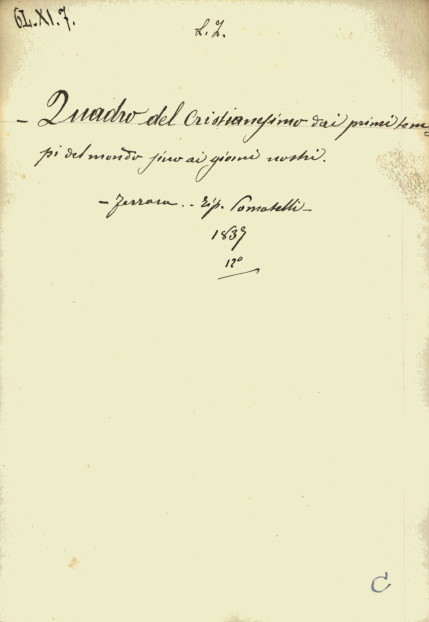 6L.XI.7.
L. Z.
- Quadro del Cristianesimo dai primi tem-
pi del mondo sino ai giorni nostri.
- Ferrara. - Tip. Pomatelli -
1837
12°
C